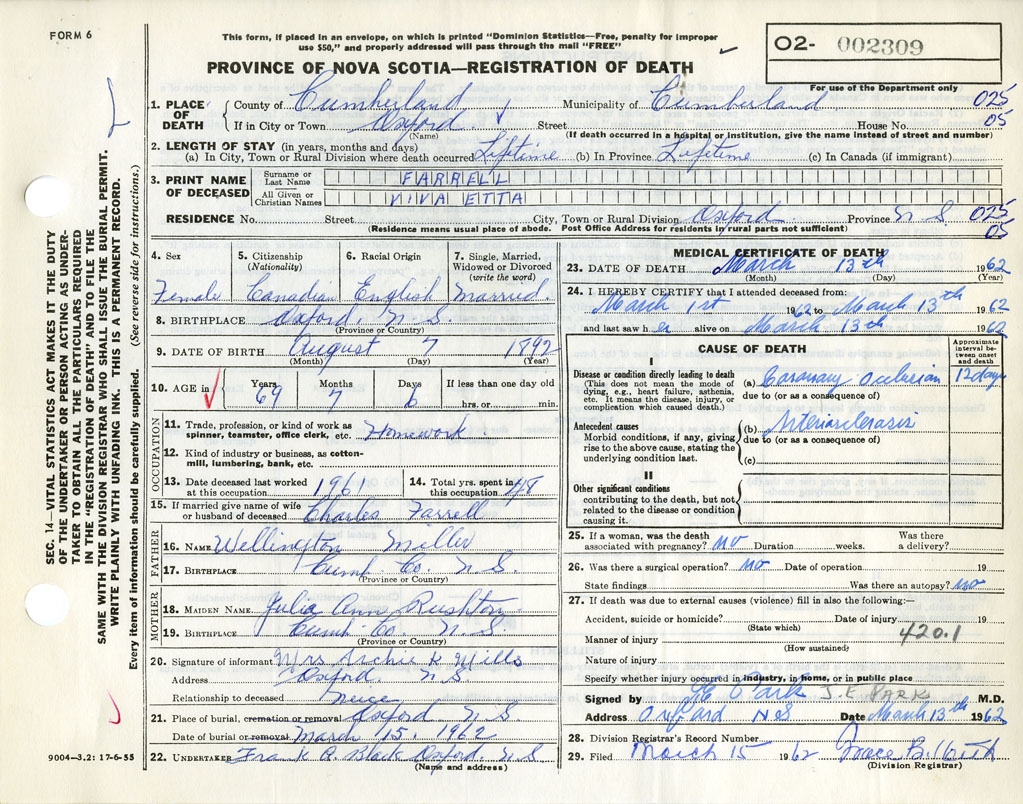 FORM 6
This form, if placed in an envelope, on which is printed "Dominion Statistics—Free, penalty for improper
use $50," and properly addressed will pass through the mail "FREE"
O2- 002309
For use of the Department only
PROVINCE OF NOVA SCOTIA—REGISTRATION OF DEATH
1. PLACE OF DEATH County of Cumberland Municipality of Cumberland 025
If in City or Town Oxford Street House No. 05
(Name) (If death occurred in a hospital or institution, give the name instead of street and number)
2. LENGTH OF STAY (in years, months and days)
(a) In City, Town or Rural Division where death occurred Lifetime (b) In Province Lifetime (c) In Canada (if immigrant)
3. PRINT NAME OF DECEASED Surname or Last Name FARRELL
All Given or Christian Names VIVA ETTA
RESIDENCE No. Street City, Town or Rural Division Oxford Province N S 025
(Residence means usual place of abode. Post Office Address for residents in rural parts not sufficient) 05
4. Sex 5. Citizenship (Nationality) 6. Racial Origin 7. Single, Married, Widowed or Divorced (write the word)
Female Canadian English Married
8. BIRTHPLACE Oxford, N.S.
(Province or Country)
9. DATE OF BIRTH August 7 1892
(Month) (Day) (Year)
10. AGE in Years Months Days If less than one day old
69 7 6 hrs. or min.
OCCUPATION
11. Trade, profession, or kind of work as
spinner, teamster, office clerk, etc. Homework
12. Kind of industry or business, as cotton-
mill, lumbering, bank, etc.
13. Date deceased last worked at this occupation 1961 14. Total yrs. spent in this occupation 48
15. If married give name of wife
or husband of deceased Charles Farrell
FATHER
16. NAME Wellington Miller
17. BIRTHPLACE Cumb. Co. N.S.
(Province or Country)
MOTHER
18. MAIDEN NAME Julia Ann Rushton
19. BIRTHPLACE Cumb. Co. N.S.
(Province or Country)
20. Signature of informant Mrs Archie K Mills
Address Oxford N.S.
Relationship to deceased neice
21. Place of burial, cremation or removal Oxford N S
Date of burial or removal March 15, 1962
22. UNDERTAKER Frank A. Black Oxford N.S
(Name and address)
MEDICAL CERTIFICATE OF DEATH
23. DATE OF DEATH March 13th 1962
(Month) (Day) (Year)
24. I HEREBY CERTIFY that I attended deceased from:
March 1st 1962 to March 13th 1962
and last saw h er alive on March 13th 1962
CAUSE OF DEATH
Approximate interval between onset and death
I
Disease or condition directly leading to death
(This does not mean the mode of
dying, e.g., heart failure, asthenia,
etc. It means the disease, injury, or
complication which caused death.)
(a) Coronary Occlusion 12 days
due to (or as a consequence of)
Antecedent causes
Morbid conditions, if any, giving
rise to the above cause, stating the
underlying condition last.
(b) Arteriosclerosis
due to (or as a consequence of)
(c)
II
Other significant conditions
contributing to the death, but not
related to the disease or condition
causing it.
25. If a woman, was the death Was there
associated with pregnancy? no Duration weeks. a delivery?
26. Was there a surgical operation? no Date of operation 19
State findings Was there an autopsy? no
27. If death was due to external causes (violence) fill in also the following:—
Accident, suicide or homicide? Date of injury 19
(State which) 420.1
Manner of injury
(How sustained)
Nature of injury
Specify whether injury occurred in industry, in home, or in public place
Signed by J E Park J. E. PARK M.D.
Address Oxford N S Date March 13th 1962
28. Division Registrar's Record Number
29. Filed March 15 1962
(Division Registrar)
SEC. 14—VITAL STATISTICS ACT MAKES IT THE DUTY
OF THE UNDERTAKER OR PERSON ACTING AS UNDER-
TAKER TO OBTAIN ALL THE PARTICULARS REQUIRED
IN THE "REGISTRATION OF DEATH" AND TO FILE THE
SAME WITH THE DIVISION REGISTRAR WHO SHALL ISSUE THE BURIAL PERMIT.
WRITE PLAINLY WITH UNFADING INK. THIS IS A PERMANENT RECORD.
Every item of information should be carefully supplied. (See reverse side for instructions.)
9004—3.2: 17-6-55